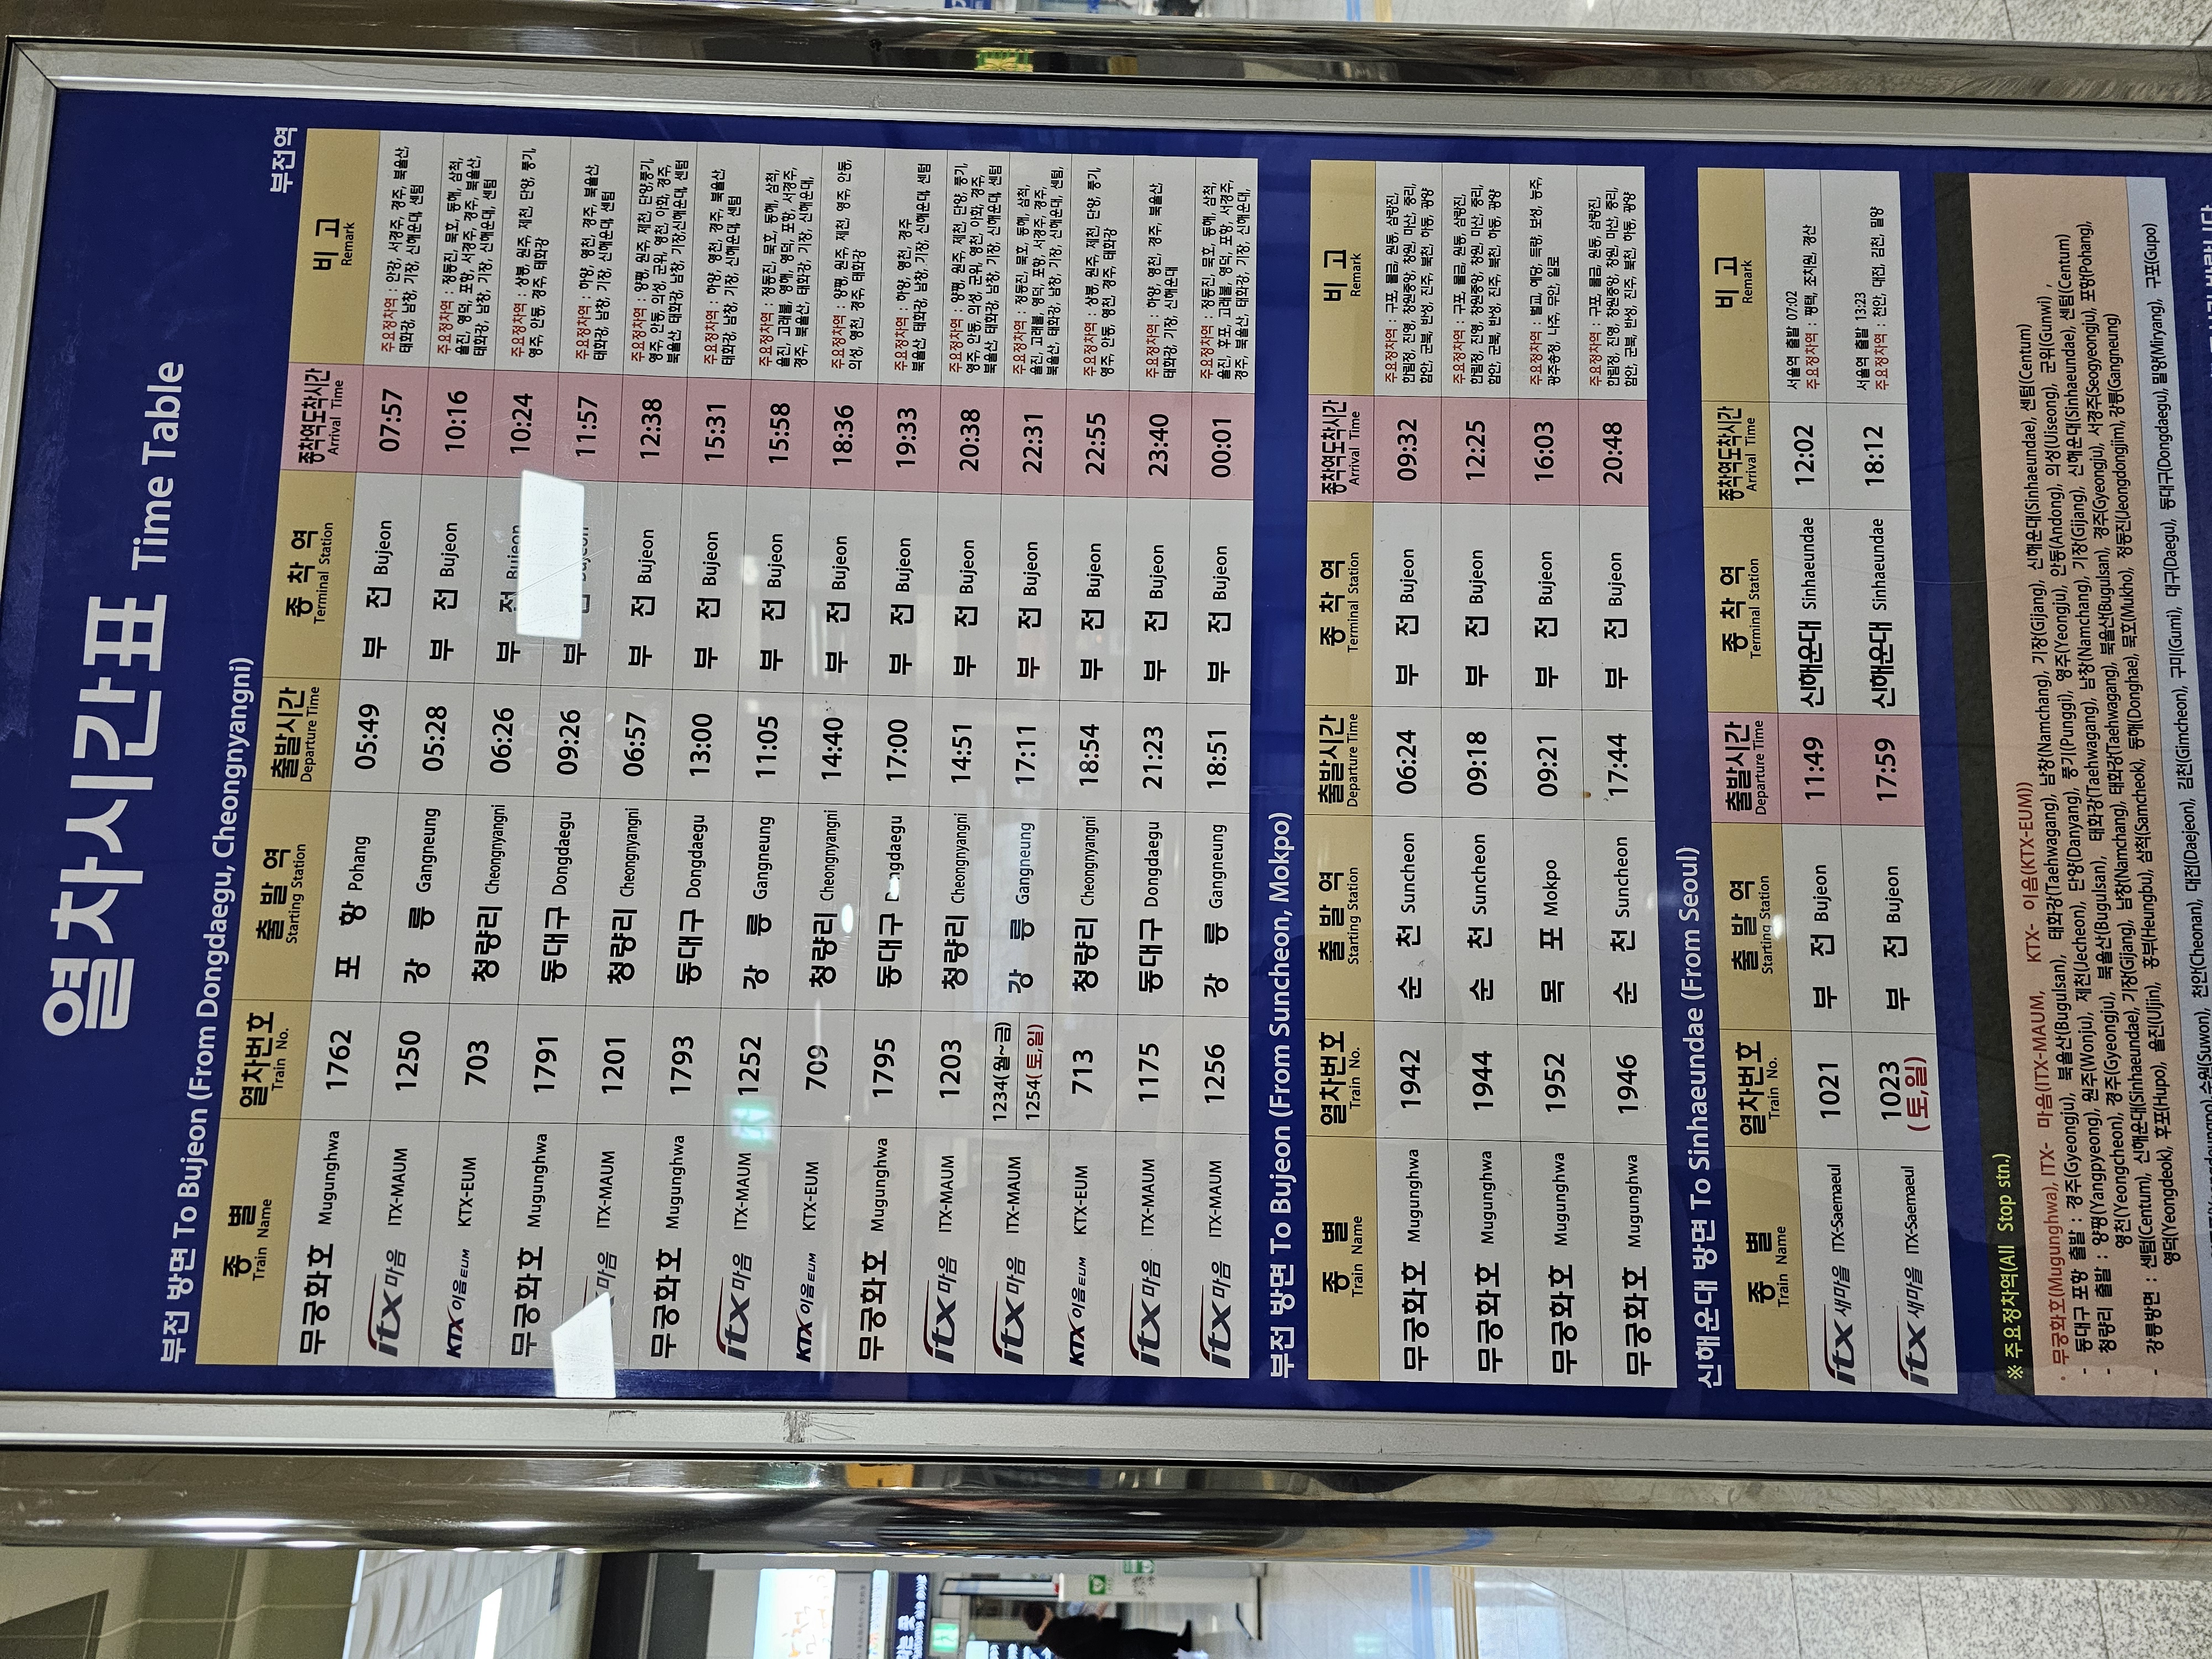 열차시간표 Time Table
부전역
부전 방면 To Bujeon (From Dongdaegu, Cheongnyangni)
종 별 열차번호 출 발 역 출발시간 종 착 역 종착역도착시간 비 고
Train Name Train No. Starting Station Departure Time Terminal Station Arrival Time Remark
무궁화호 Mugunghwa 1762 포 항 Pohang 05:49 부 전 Bujeon 07:57 주요정차역 : 안강, 서경주, 경주, 북울산,
태화강, 남창, 기장, 신해운대, 센텀
itx 마음 ITX-MAUM 1250 강 릉 Gangneung 05:28 부 전 Bujeon 10:16 주요정차역 : 정동진, 묵호, 동해, 삼척,
울진, 영덕, 포항, 서경주, 경주, 북울산,
태화강, 남창, 기장, 신해운대, 센텀
KTX 이음 EUM KTX-EUM 703 청량리 Cheongnyangni 06:26 부 전 Bujeon 10:24 주요정차역 : 상봉, 원주, 제천, 단양, 풍기,
영주, 안동, 경주, 태화강
무궁화호 Mugunghwa 1791 동대구 Dongdaegu 09:26 부 11:57 주요정차역 : 하양, 영천, 경주, 북울산,
태화강, 남창, 기장, 신해운대, 센텀
마음 ITX-MAUM 1201 청량리 Cheongnyangni 06:57 부 전 Bujeon 12:38 주요정차역 : 양평, 원주, 제천, 단양,풍기,
영주, 안동, 의성, 군위, 영천, 아화, 경주,
북울산, 태화강, 남창, 기장,신해운대, 센텀
무궁화호 Mugunghwa 1793 동대구 Dongdaegu 13:00 부 전 Bujeon 15:31 주요정차역 : 하양, 영천, 경주, 북울산,
태화강, 남창, 기장, 신해운대, 센텀
itx 마음 ITX-MAUM 1252 강 릉 Gangneung 11:05 부 전 Bujeon 15:58 주요정차역 : 정동진, 묵호, 동해, 삼척,
울진, 고래불, 영해, 영덕, 포항, 서경주,
경주, 북울산, 태화강, 기장, 신해운대,
KTX 이음 EUM KTX-EUM 709 청량리 Cheongnyangni 14:40 부 전 Bujeon 18:36 주요정차역 : 양평, 원주, 제천, 영주, 안동,
의성, 영천, 경주, 태화강
무궁화호 Mugunghwa 1795 동대구 Dongdaegu 17:00 부 전 Bujeon 19:33 주요정차역 : 하양, 영천, 경주,
북울산, 태화강, 남창, 기장, 신해운대, 센텀
itx 마음 ITX-MAUM 1203 청량리 Cheongnyangni 14:51 부 전 Bujeon 20:38 주요정차역 : 양평, 원주, 제천, 단양, 풍기,
영주, 안동, 의성, 군위, 영천, 아화, 경주,
북울산, 태화강, 남창, 기장, 신해운대, 센텀
itx 마음 ITX-MAUM 1234(월~금) 1254(토,일) 강 릉 Gangneung 17:11 부 전 Bujeon 22:31 주요정차역 : 정동진, 묵호, 동해, 삼척,
울진, 후포, 고래불, 영덕, 포항, 서경주, 경주,
북울산, 태화강, 남창, 기장, 신해운대, 센텀,
KTX 이음 EUM KTX-EUM 713 청량리 Cheongnyangni 18:54 부 전 Bujeon 22:55 주요정차역 : 상봉, 원주, 제천, 단양, 풍기,
영주, 안동, 영천, 경주, 태화강
itx 마음 ITX-MAUM 1175 동대구 Dongdaegu 21:23 부 전 Bujeon 23:40 주요정차역 : 하양, 영천, 경주, 북울산,
태화강, 기장, 신해운대
itx 마음 ITX-MAUM 1256 강 릉 Gangneung 18:51 부 전 Bujeon 00:01 주요정차역 : 정동진, 묵호, 동해, 삼척,
울진, 후포, 고래불, 영덕, 포항, 서경주,
경주, 북울산, 태화강, 기장, 신해운대,
부전 방면 To Bujeon (From Suncheon, Mokpo)
종 별 열차번호 출 발 역 출발시간 종 착 역 종착역도착시간 비 고
Train Name Train No. Starting Station Departure Time Terminal Station Arrival Time Remark
무궁화호 Mugunghwa 1942 순 천 Suncheon 06:24 부 전 Bujeon 09:32 주요정차역 : 구포, 물금, 원동, 삼랑진,
한림정, 진영, 창원중앙, 창원, 마산, 중리,
함안, 군북, 반성, 진주, 북천, 하동, 광양
무궁화호 Mugunghwa 1944 순 천 Suncheon 09:18 부 전 Bujeon 12:25 주요정차역 : 구포, 물금, 원동, 삼랑진,
한림정, 진영, 창원중앙, 창원, 마산, 중리,
함안, 군북, 반성, 진주, 북천, 하동, 광양
무궁화호 Mugunghwa 1952 목 포 Mokpo 09:21 부 전 Bujeon 16:03 주요정차역 : 벌교, 예당, 득량, 보성, 능주,
광주송정, 나주, 무안, 일로
무궁화호 Mugunghwa 1946 순 천 Suncheon 17:44 부 전 Bujeon 20:48 주요정차역 : 구포, 물금, 원동, 삼랑진,
한림정, 진영, 창원중앙, 창원, 마산, 중리,
함안, 군북, 반성, 진주, 북천, 하동, 광양
신해운대 방면 To Sinhaeundae (From Seoul)
종 별 열차번호 출 발 역 출발시간 종 착 역 종착역도착시간 비 고
Train Name Train No. Starting Station Departure Time Terminal Station Arrival Time Remark
itx 새마을 ITX-Saemaeul 1021 부 전 Bujeon 11:49 신해운대 Sinhaeundae 12:02 서울역 출발 07:02
주요정차역 : 평택, 조치원, 경산
itx 새마을 ITX-Saemaeul 1023 (토,일) 부 전 Bujeon 17:59 신해운대 Sinhaeundae 18:12 서울역 출발 13:23
주요정차역 : 천안, 대전, 김천, 밀양
※ 주요정차역(All Stop stn.)
· 무궁화호(Mugunghwa), ITX- 마음(ITX-MAUM, KTX- 이음(KTX-EUM))
- 동대구 포항 출발 : 경주(Gyeongju), 북울산(Bugulsan), 태화강(Taehwagang), 남창(Namchang), 기장(Gijang), 신해운대(Sinhaeundae), 센텀(Centum)
- 청량리 출발 : 양평(Yangpyeong), 원주(Wonju), 제천(Jecheon), 단양(Danyang), 풍기(Punggi), 영주(Yeongju), 안동(Andong), 의성(Uiseong), 군위(Gunwi) ,
영천(Yeongcheon), 경주(Gyeongju), 북울산(Bugulsan), 태화강(Taehwagang), 남창(Namchang), 기장(Gijang), 신해운대(Sinhaeundae), 센텀(Centum)
- 강릉방면 : 센텀(Centum), 신해운대(Sinhaeundae), 기장(Gijang), 남창(Namchang), 태화강(Taehwagang), 북울산(Bugulsan), 경주(Gyeongju), 서경주(Seogyeongju), 포항(Pohang),
영덕(Yeongdeok), 후포(Hupo), 울진(Uljin), 흥부(Heungbu), 삼척(Samcheok), 동해(Donghae), 묵호(Mukho), 정동진(Jeongdongjin), 강릉(Gangneung)
수원(Suwon), 천안(Cheonan), 대전(Daejeon), 김천(Gimcheon), 구미(Gumi), 대구(Daegu), 동대구(Dongdaegu), 밀양(Miryang), 구포(Gupo)